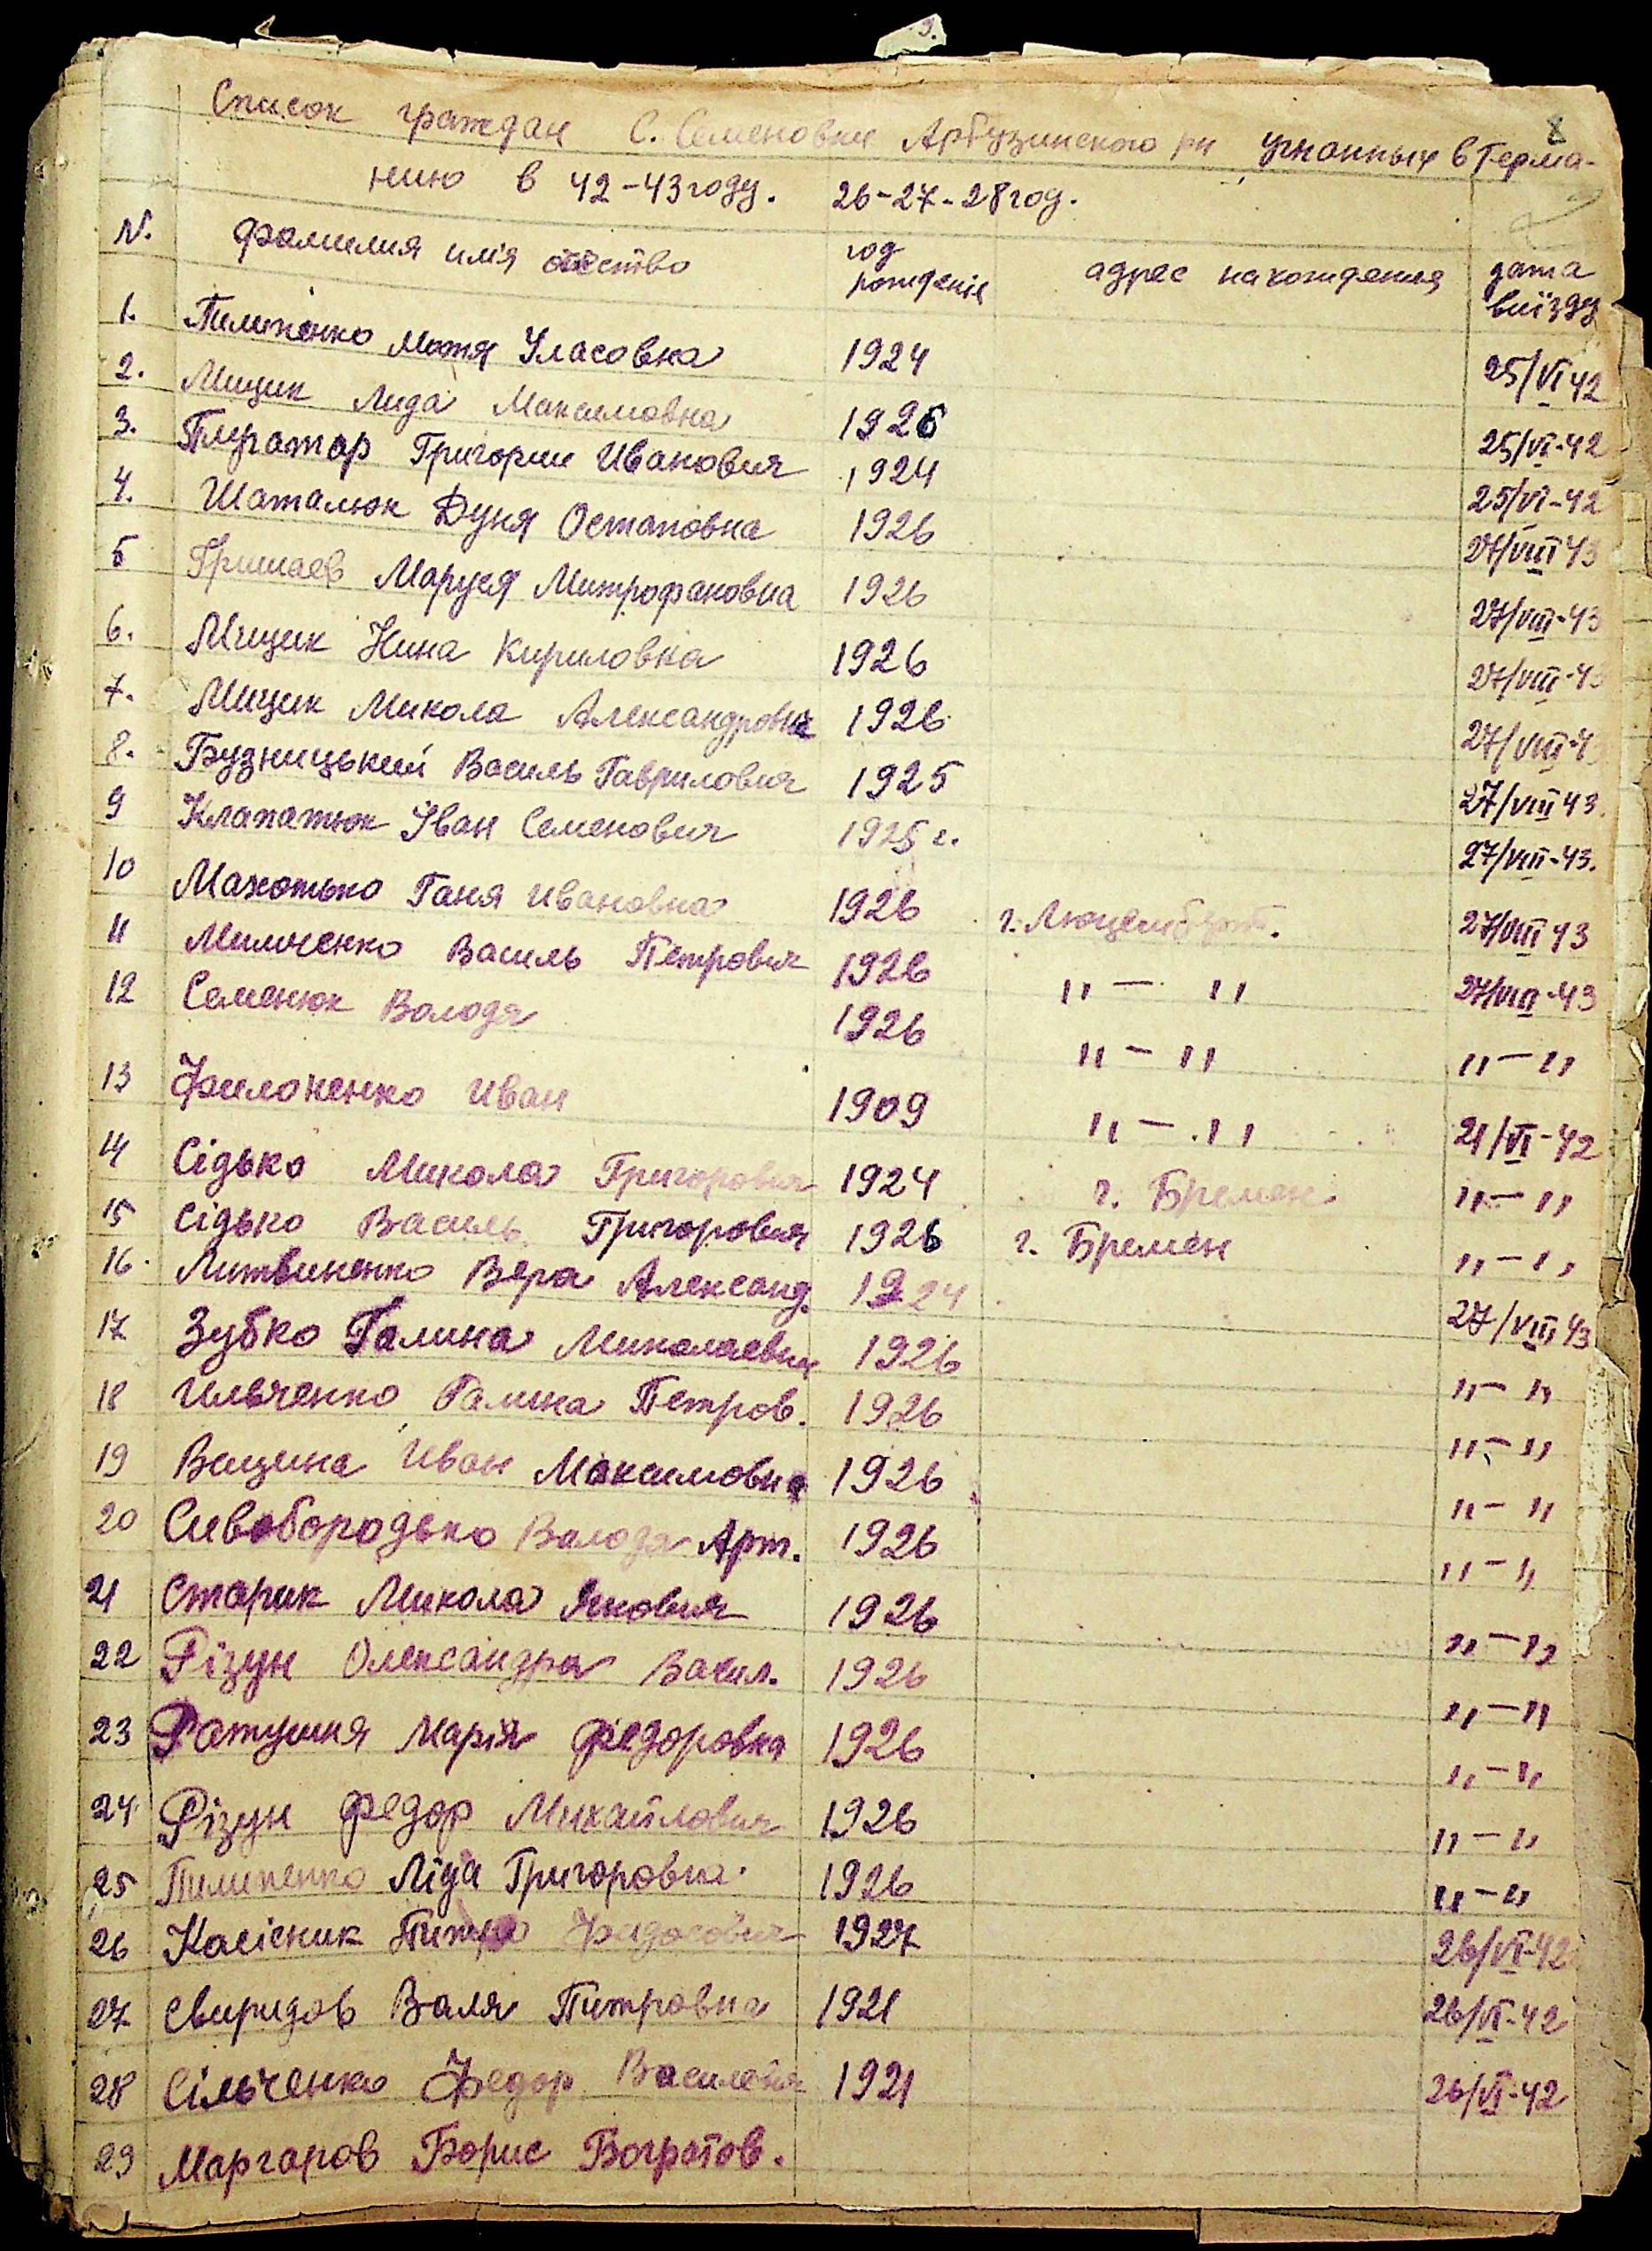 8
Список граждан С. Семеновки Арбузинского рн угнанных в Герма-
нию в 42-43 году. 26-27-28 год.
N. фамилия имія отество год рождения адрес нахождения дата виїзду
1. Пилипенко Мотя Уласовна 1924 25/VI 42
2. Мицик Лида Максимовна 1926 25/VI-42
3. Григории Иванович 1924 25/VI-42
4. Шаталюк Дуня Остаповна 1926 27/VIII 43
5 Гришаев Маруся Митрофановна 1926 27/VIII-43
6. Мицик Нина Кириловна 1926 27/VIII-43
7. Мицик Микола Александрович 1926 27/VIII-43
8. Бузницький Василь Гаврилович 1925 27/VIII 43.
9 Клапатюк Іван Семенович 1925 г. 27/VIII-43.
10 Махотько Ганя Ивановна 1926 г. Люцембург. 27/VIII 43
11 Василь Петрович 1926 "-" 27/VIII-43
12 Семенюк Володя 1926 "-" "-"
13 Филоненко Иван 1909 "-" 21/VI-42
14 Сідько Микола Григорович 1924 г. Бремен. "-"
15 Сідько Василь Григорович 1926 г. Бремен "-"
16. Литвиненко Вера Александ. 1924 27/VIII 43
17 Зубко Галина Миколаевни 1926 "-"
18 Ильченко Галина Петров. 1926 "-"
19 Ващина Иван Максимовна 1926 "-"
20 Сивобородько Володя Арт. 1926 "-"
21 Старик Микола Якович 1926 "-"
22 Різун Олександра Васил. 1926 "-"
23 Ратушня Марія Федоровна 1926 "-"
24 Різун Федор Михайлович 1926 "-"
25 Пилипенко Ліда Григоровна. 1926 "-"
26 Калісник Питро Федосович 1927 26/VI-42
27 Свиридов Валя Питровна 1921 26/VI-42
28 Сільченко Федор Василевич 1921 26/VI-42
29 Маргаров Борис Богратов.